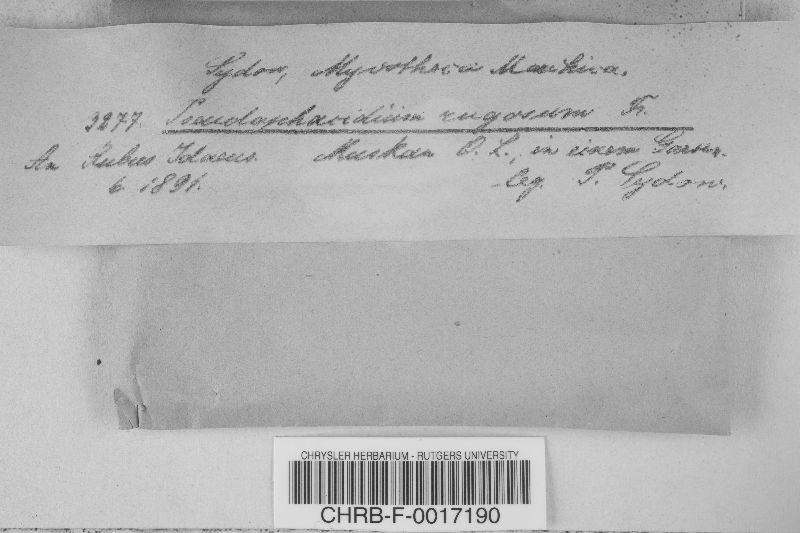 Sydow, Mycotheca Marchica.
3277. Pseudophacidium rugosum Fr.
An Rubus Idaeus. Muskau O. L., in einem Garten.
6. 1891. leg. P. Sydow.
CHRYSLER HERBARIUM - RUTGERS UNIVERSITY
CHRB-F-0017190